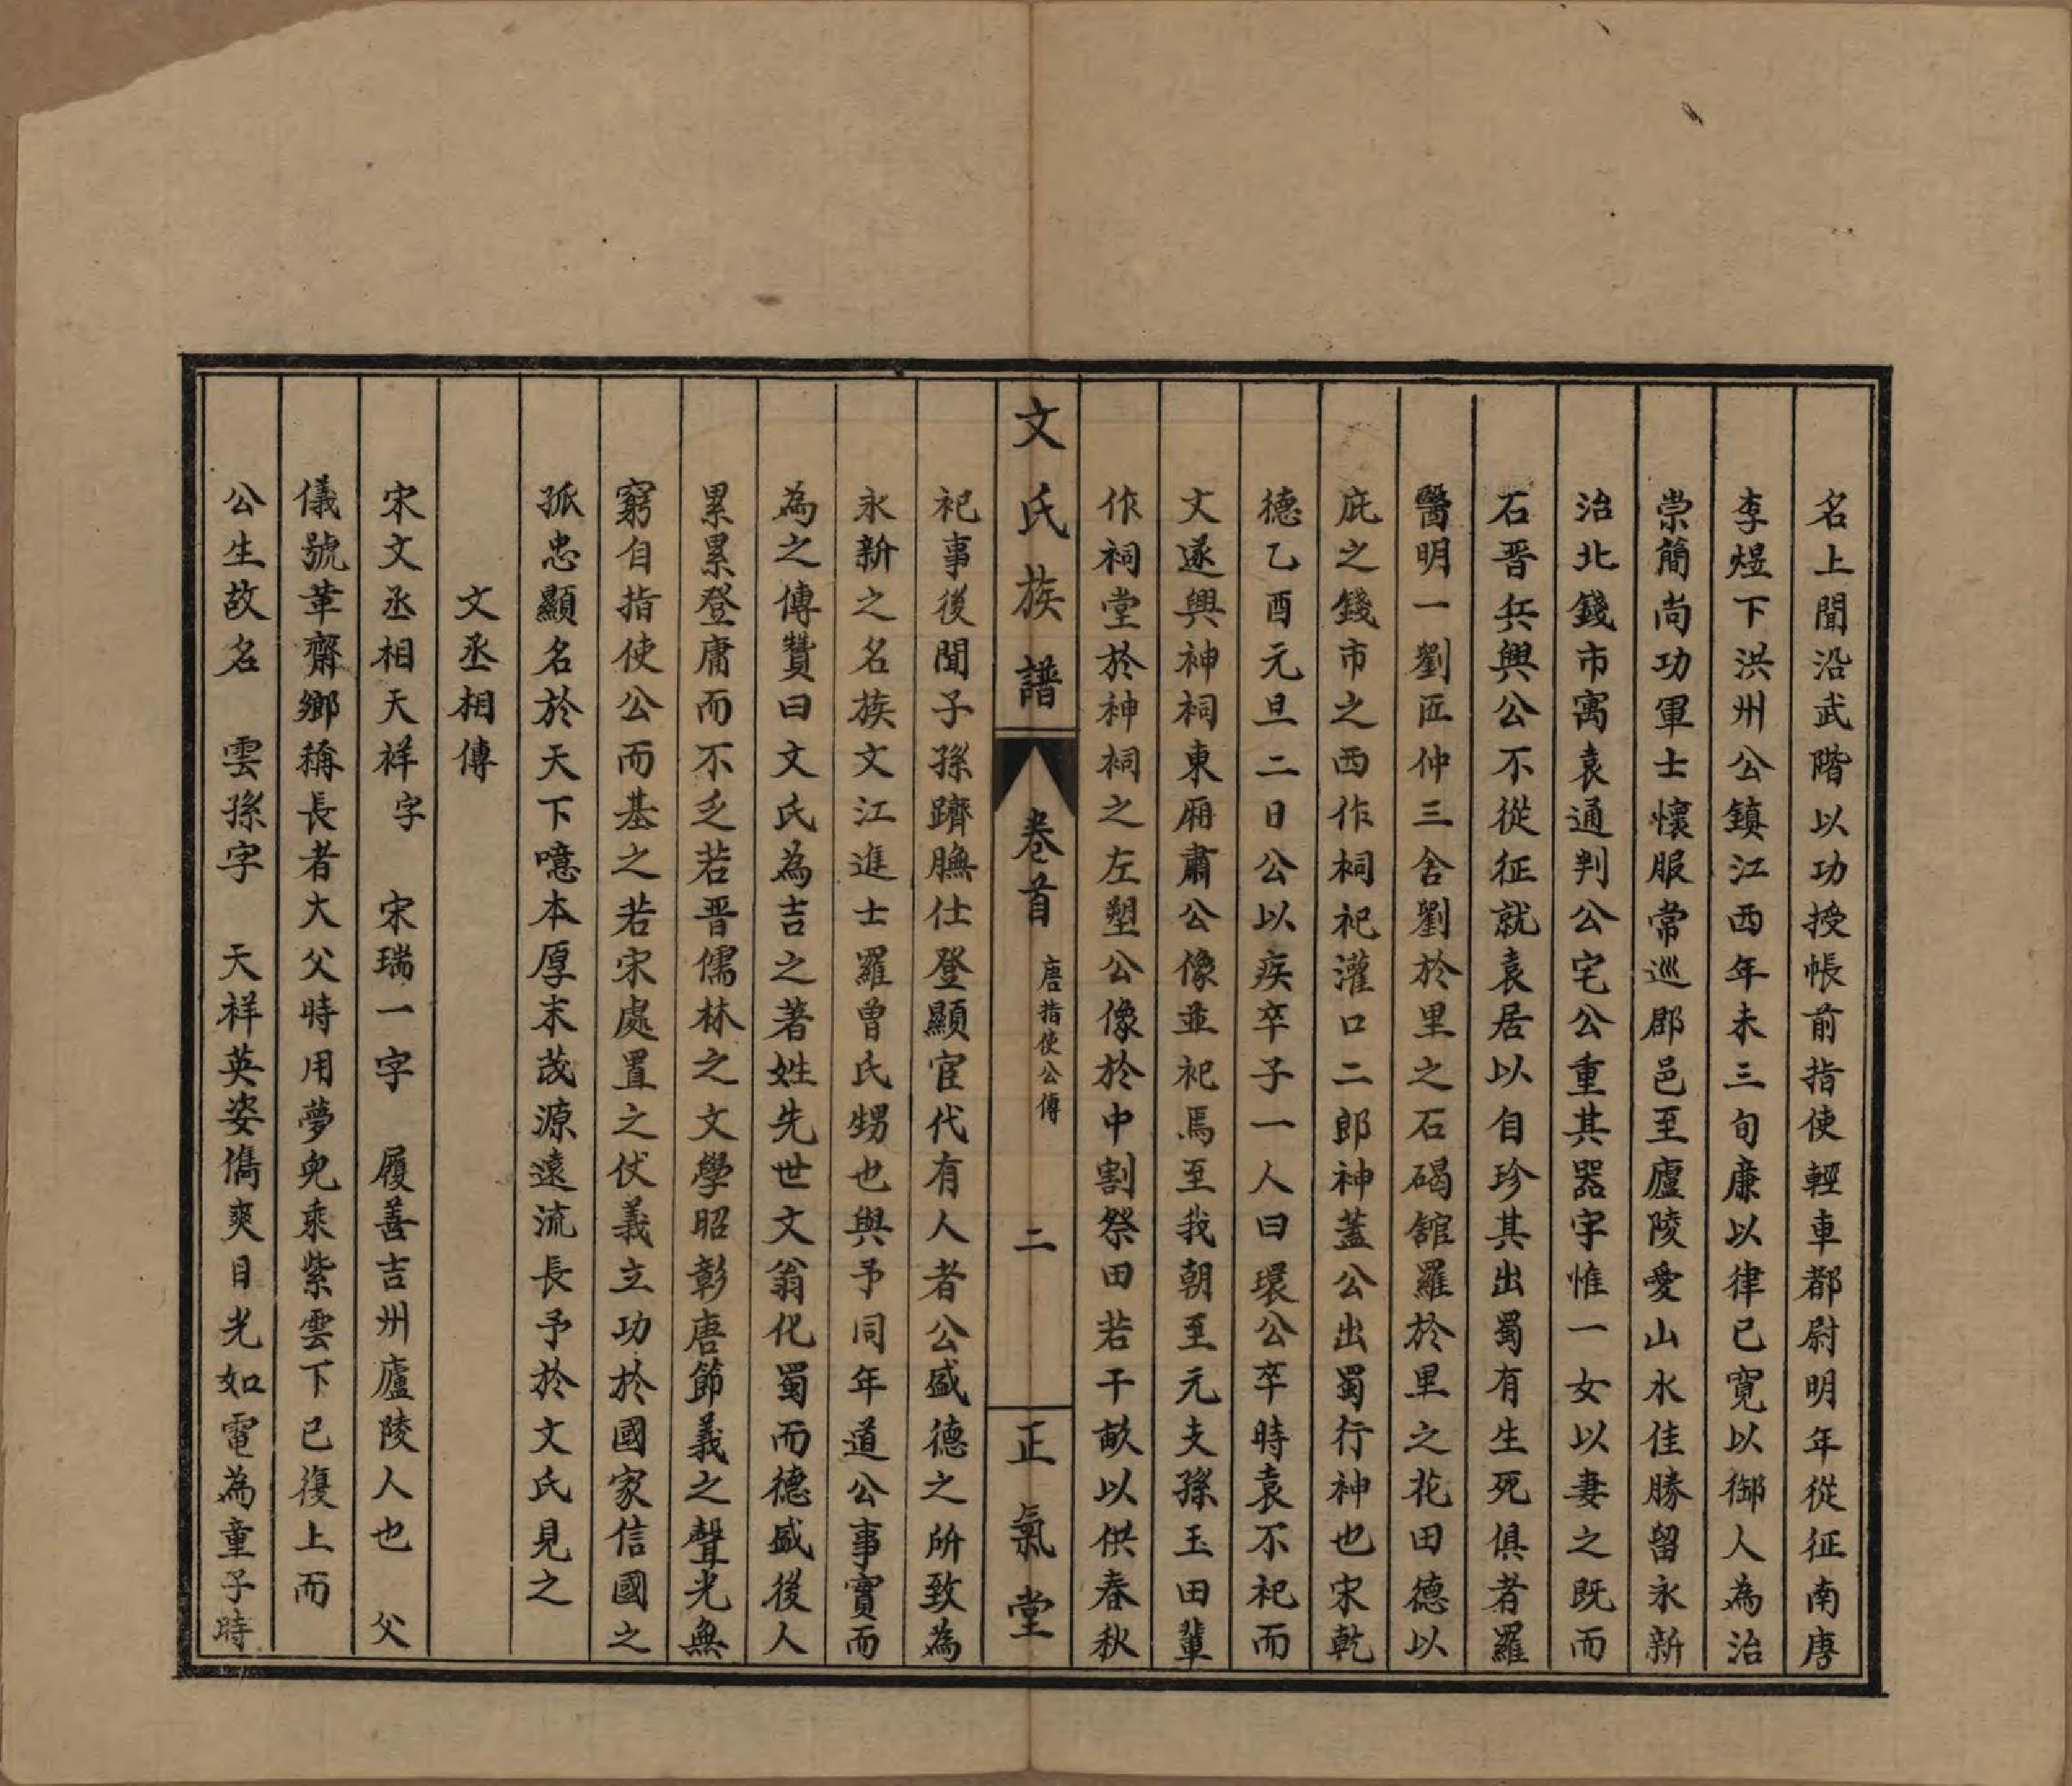 名上聞沿武階以功授帳前指使輕車都尉明年從征南唐
李煜下洪州公鎮江西年未三旬廉以律己寬以御人為治
崇簡尚功軍士懷服常巡郡邑至廬陵愛山水佳勝留永新
治北錢市寓袁通判公宅公重其器字惟一女以妻之既而
石晋兵興公不從征就袁居以自珍其出蜀有生死俱者羅
醫明一劉匠仲三舍劉於里之石碣館羅於里之花田德以
庇之錢市之西作祠祀灌口二郎神蓋公出蜀行神也宋乾
德乙酉元旦二日公以疾卒子一人曰環公卒時袁不祀而
文遂興神祠東廂肅公像並祀焉至我朝至元支孫玉田輩
作祠堂於神祠之左塑公像於中割祭田若干畝以供春秋
文氏族譜 卷首 唐指使公傳 二 正氣堂
祀事後聞子孫躋膴仕登顯宦代有人者公盛德之所致為
永新之名族文江進士羅曾氏甥也與予同年道公事實而
為之傳贊曰文氏為吉之著姓先世文翁化蜀而德盛後人
累累登庸而不乏若晋儒林之文學昭彰唐節義之聲光無
窮自指使公而基之若宋處置之伏義立功於國家信國之
孤忠顯名於天下噫本厚末茂源遠流長予於文氏見之
文丞相傳
宋文丞相天祥字 宋瑞一字 履善吉州廬陵人也 父
儀號革齋鄉稱長者大父時用夢兒乘紫雲下已復上而
公生故名 雲孫字 天祥英姿儁爽目光如電為童子時